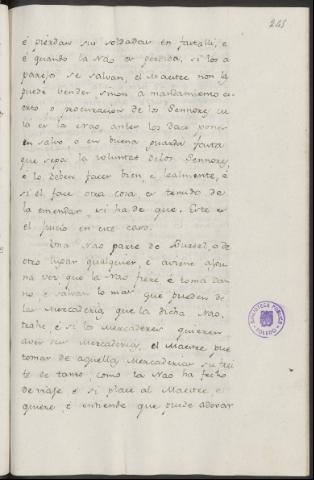 245
é pierdan sus soldadas en fastalli, e
é quando la Nao es perdida, si los a
parejos se salvan, el Maestre non la
puede vender sinon a mandamiento ci
erto o procuracion de los Sennores cu
ia es la Nao, antes los dave poner
en salvo o en buena guarda fasta
que sepa la voluntat delos Sennores,
é lo deben facer bien, e lealmente, é
si el face otra cosa es tenudo de
la emendar si ha de que. Este es
el juicio en este caso.
Una Nao parte de Burdel, o de
otro lugar qualquier, e aviene algu
na vez que la Nao fiere é toma dan
no e salvan lo mas que pueden de
las Mercaderia, que la dicha Nao,
trahe, é si los Mercaderes quieren
aver sus Mercaderias, el Maestre pue
tomar de aquella Mercaderias su flei
te de tanto, como la Nao ha fecho
de viaje e si place al Maestre e
quiere, é entiende que puede adovar
BIBLIOTECA PUBLICA
TOLEDO